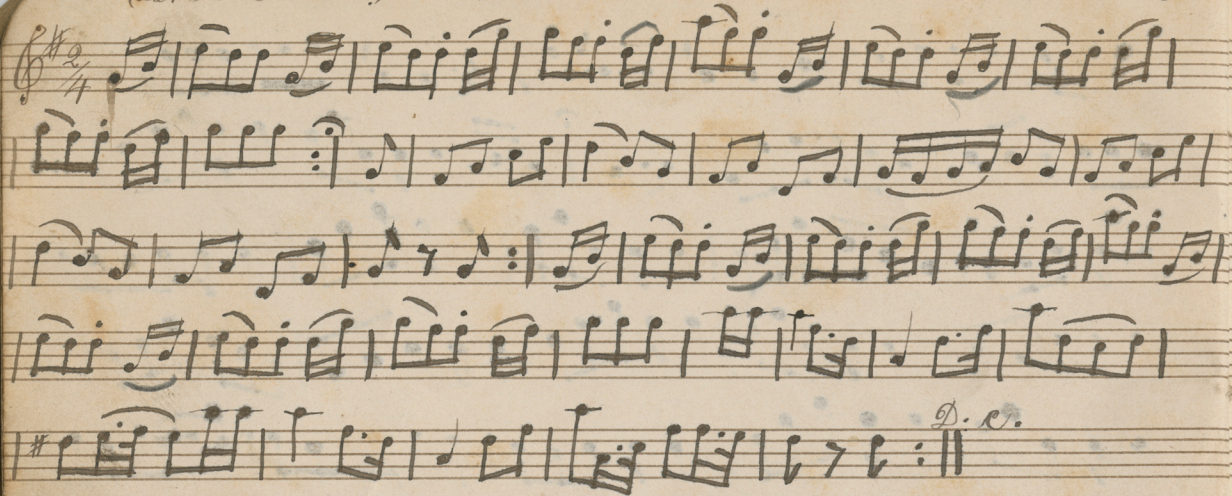 2/4
D. C.